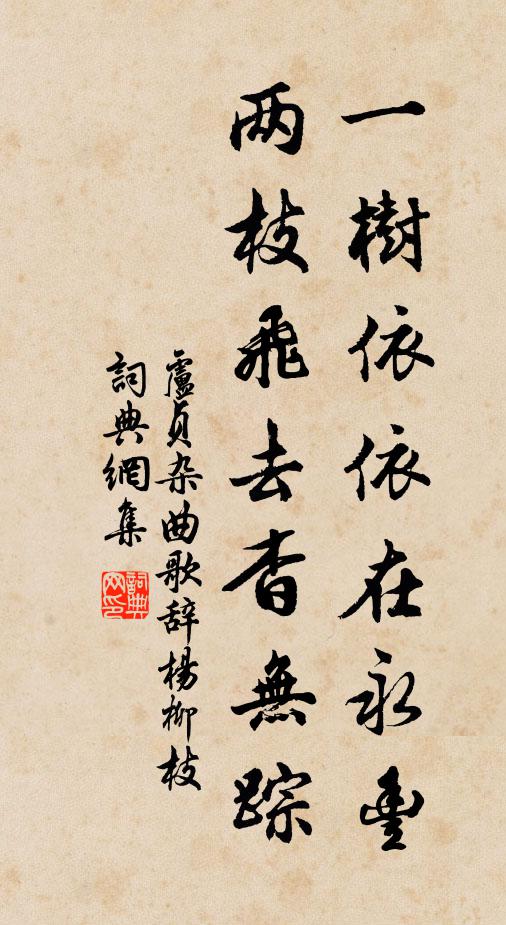 一樹依依在永豐
两枝飛去杳無踪
盧貞杂曲歌辞楊柳枝
詞典網集
詞典网印